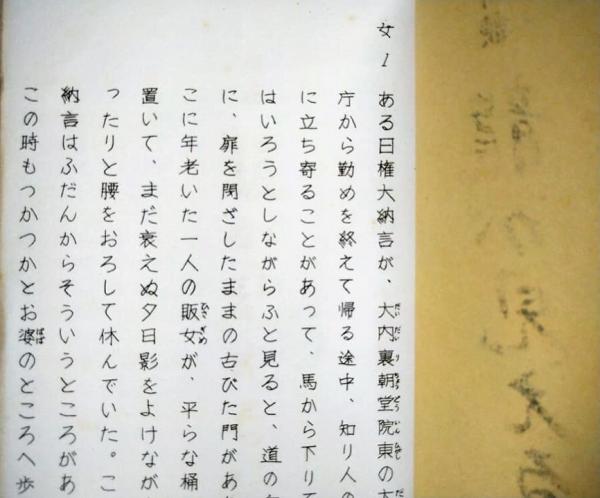 女1 ある日権大納言が、大内裏朝堂院東の
庁から勤めを終えて帰る途中、知り人の
に立ち寄ることがあって、馬から下りて
はいろうとしながらふと見ると、道の
に、扉を閉ざしたままの古びた門があ
こに年老いた一人の販女が、平らな桶
置いて、まだ衰えぬ夕日影をよけなが
ったりと腰をおろして休んでいた。こ
納言はふだんからそういうところがあ
この時もつかつかとお婆のところへ歩